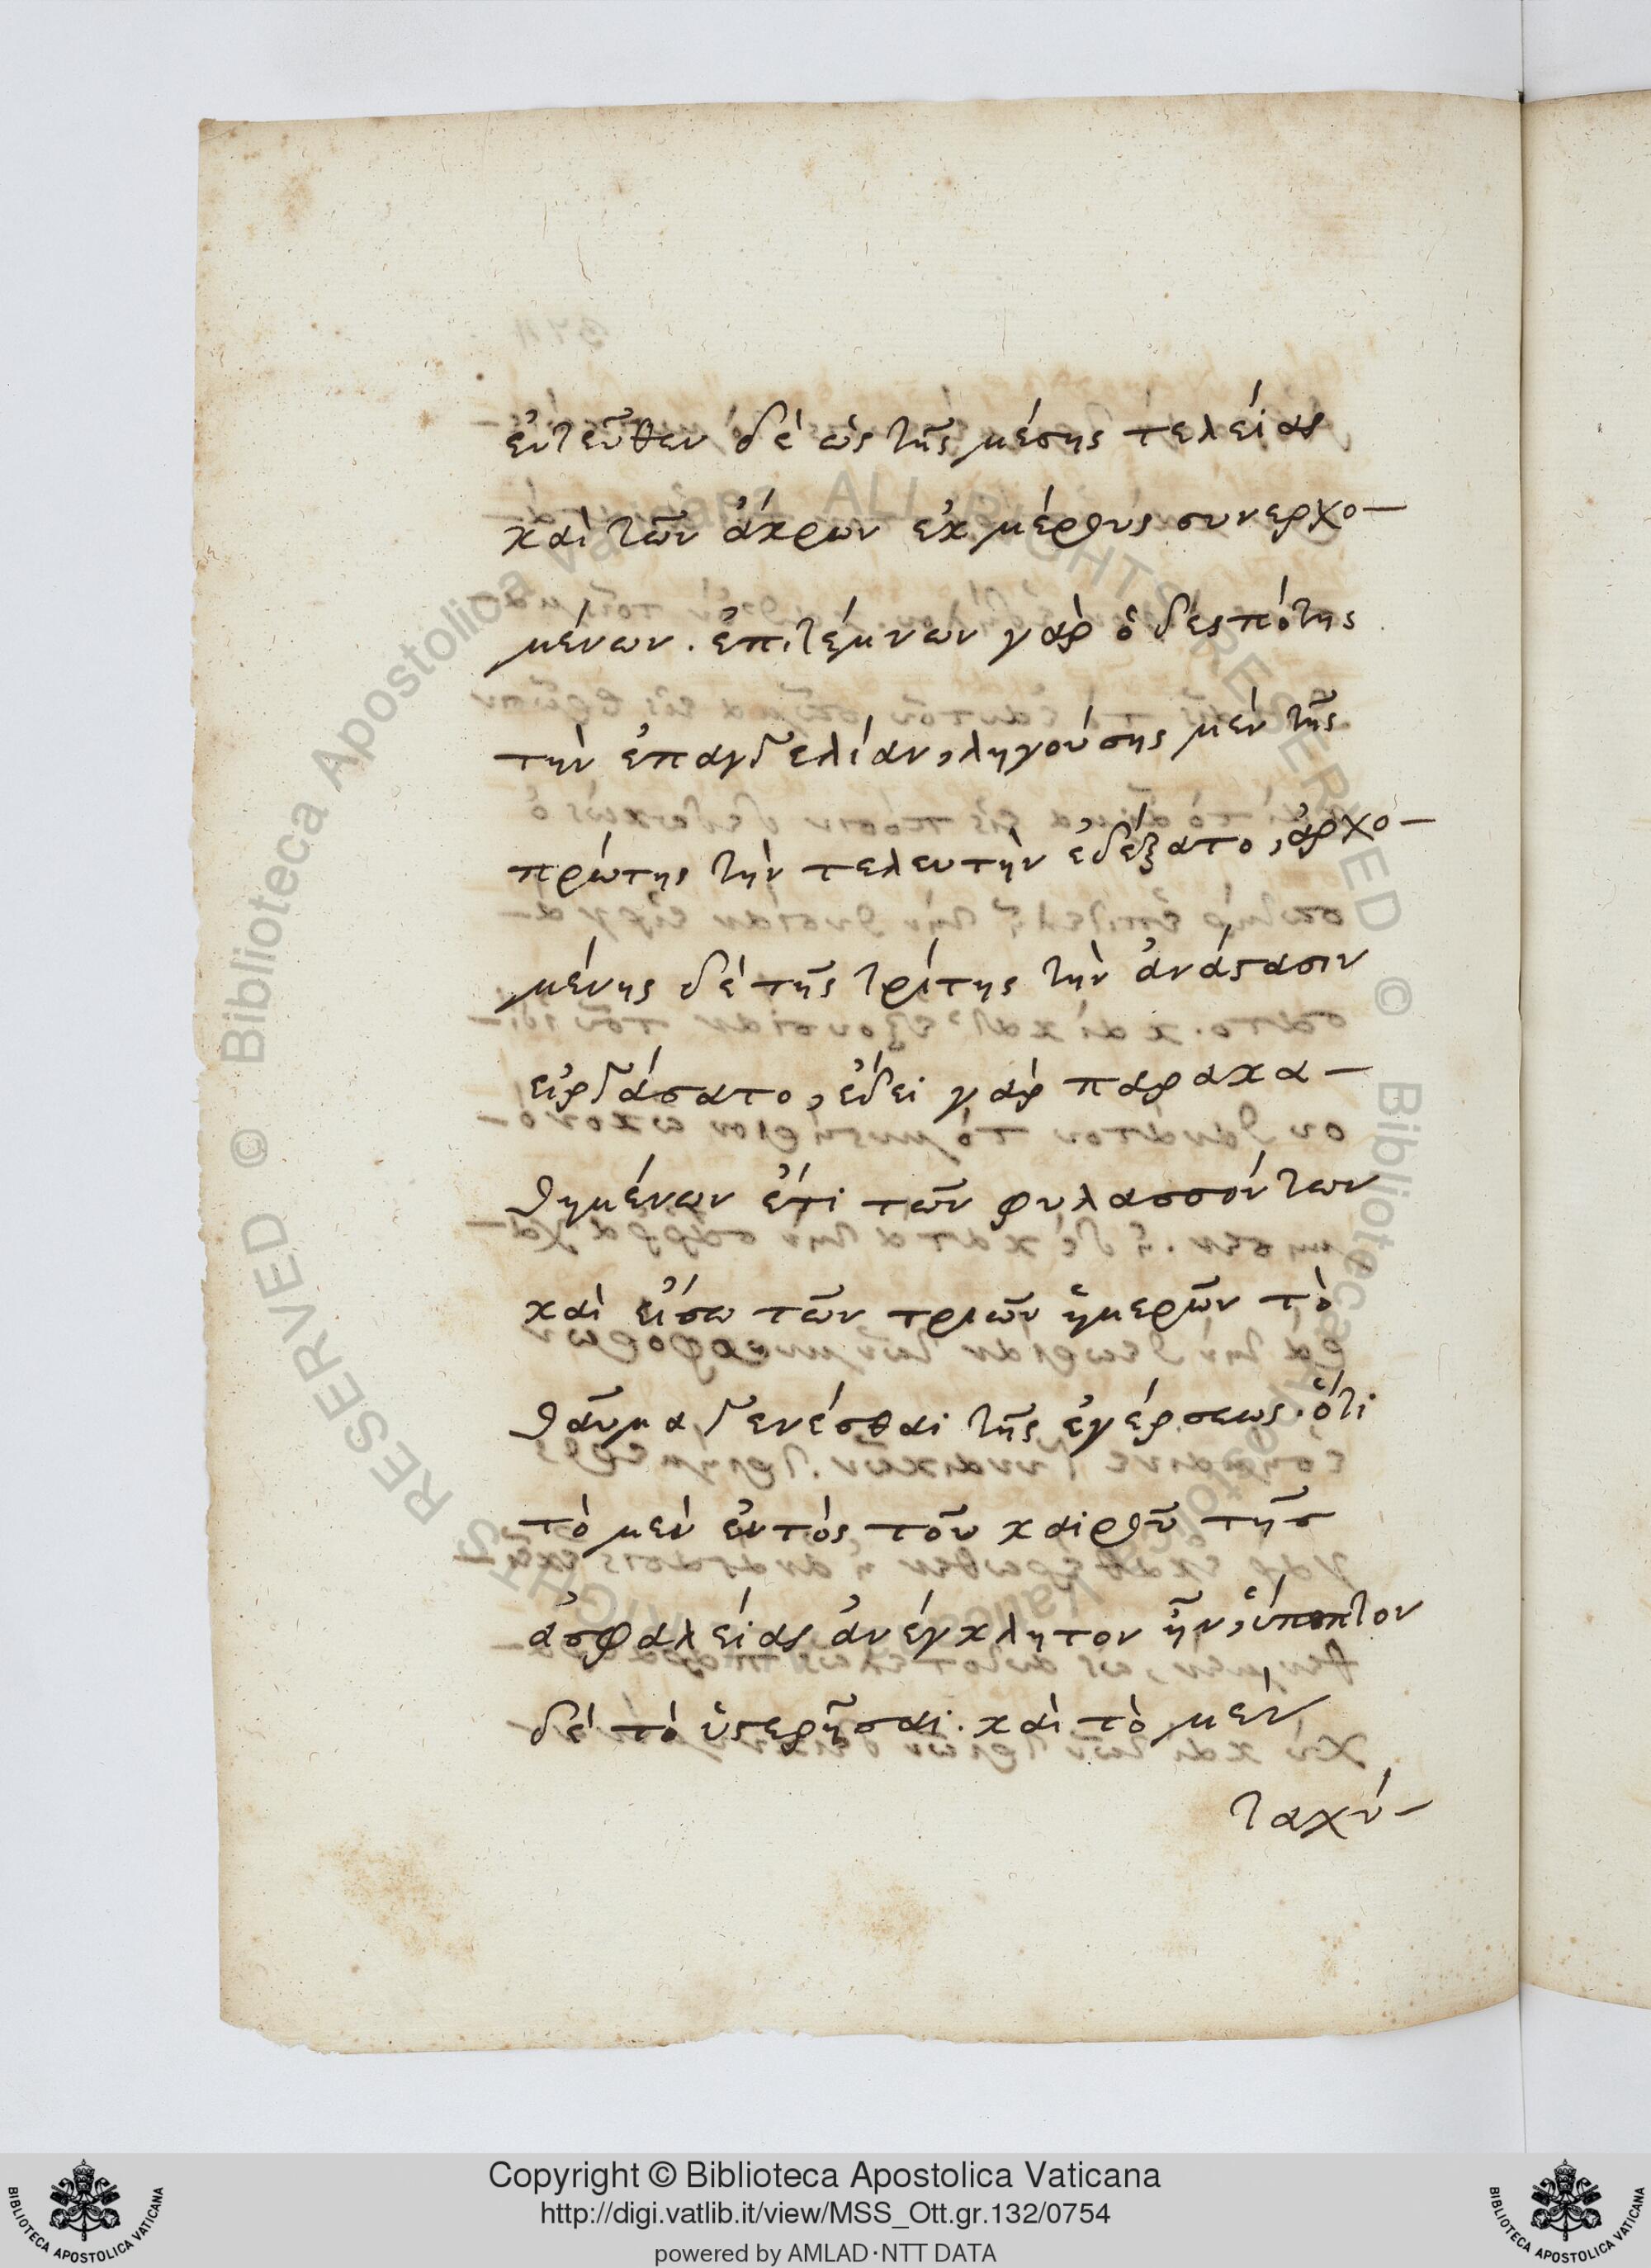 ἐντεῦθεν δὲ ὡς τῆς μέσης τελείας
καὶ τῶν ἄκρων ἐκ μέρους συνερχο-
μένων. ἐπιτέμνων γὰρ ὁ δεσπότης
τὴν ἐπαγγελίαν, ληγούσης μὲν τῆς
πρώτης τὴν τελευτὴν ἐδέξατο, ἀρχο-
μένης δὲ τῆς τρίτης τὴν ἀνάστασιν
εἰργάσατο, ἔδει γὰρ παρακα-
θημένων ἔτι τῶν φυλασσόντων
καὶ εἴσω τῶν τριῶν ἡμερῶν τὸ
θαῦμα γενέσθαι τῆς ἐγέρσεως. ὅτι
τὸ μὲν ἐντὸς τοῦ καιροῦ τῆς
ἀσφαλείας ἀνέγκλητον ἦν, ὕποπτον
δὲ τὸ ὑστερῆσαι. καὶ τὸ μὲν
ταχύ-
Copyright © Biblioteca Apostolica Vaticana
http://digi.vatlib.it/view/MSS_Ott.gr.132/0754
powered by AMLAD·NTT DATA
BIBLIOTECA APOSTOLICA VATICANA
BIBLIOTECA APOSTOLICA VATICANA